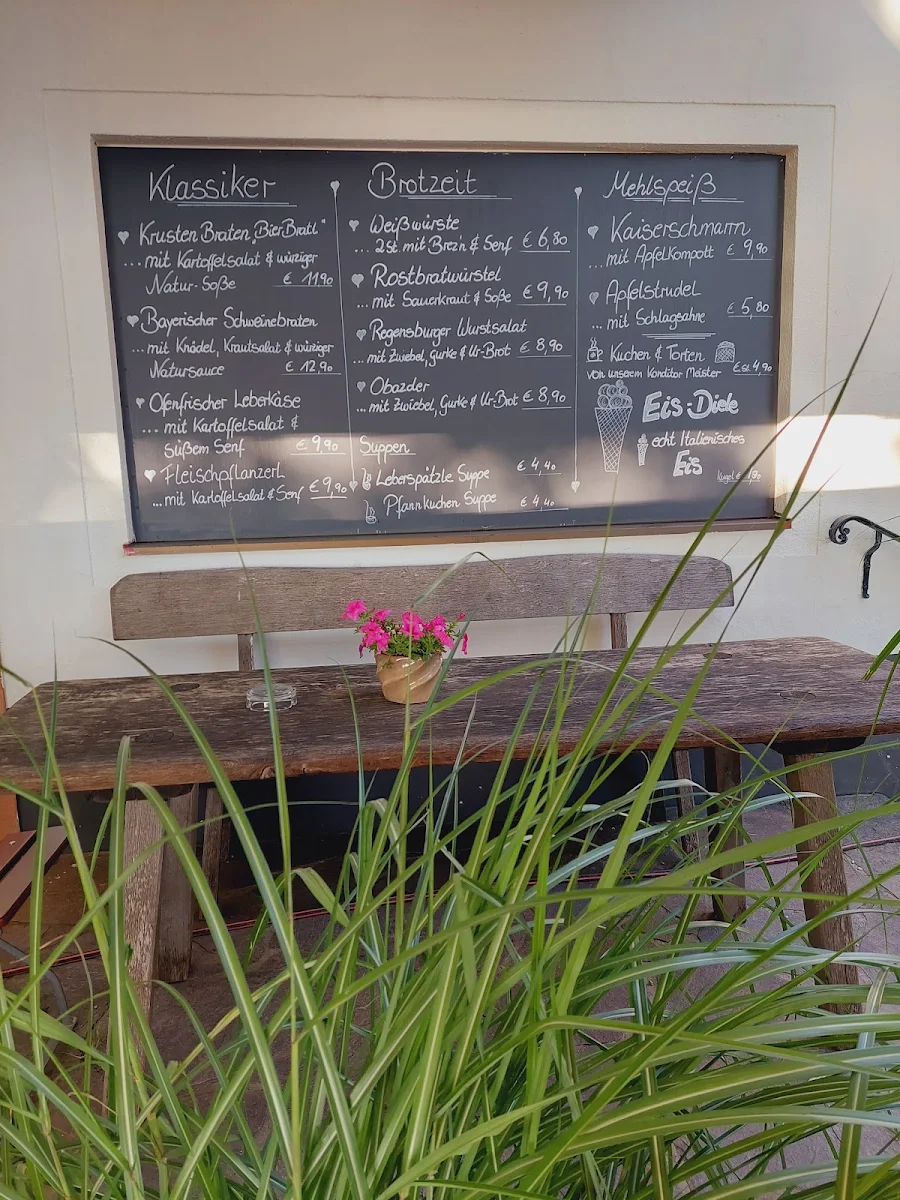 Klassiker
Krusten Braten „BierBratl"
...mit Kartoffelsalat & würziger
Natur-Soße € 11,90
Bayerischer Schweinebraten
...mit Knödel, Krautsalat & würziger
Natursauce € 12,90
Ofenfrischer Leberkäse
... mit Kartoffelsalat &
süßem Senf € 9,90
Fleischpflanzerl
...mit Kartoffelsalat & Senf € 9,90
Brotzeit
Weißwürste
... 2 St. mit Brez'n & Senf € 6,80
Rostbratwürstel
...mit Sauerkraut & Soße € 9,90
Regensburger Wurstsalat
...mit Zwiebel, Gurke & Ur-Brot € 8,90
Obazder
...mit Zwiebel, Gurke & Ur-Brot € 8,90
Suppen
Leberspätzle Suppe € 4,40
Pfannkuchen Suppe € 4,40
Mehlspeiß
Kaiserschmarrn
...mit Apfelkompott € 9,90
Apfelstrudel
... mit Schlagsahne € 5,80
Kuchen & Torten
von unserem Konditor Meister € St. 4,90
Eis-Diele
echt Italienisches
Eis
Kugel €